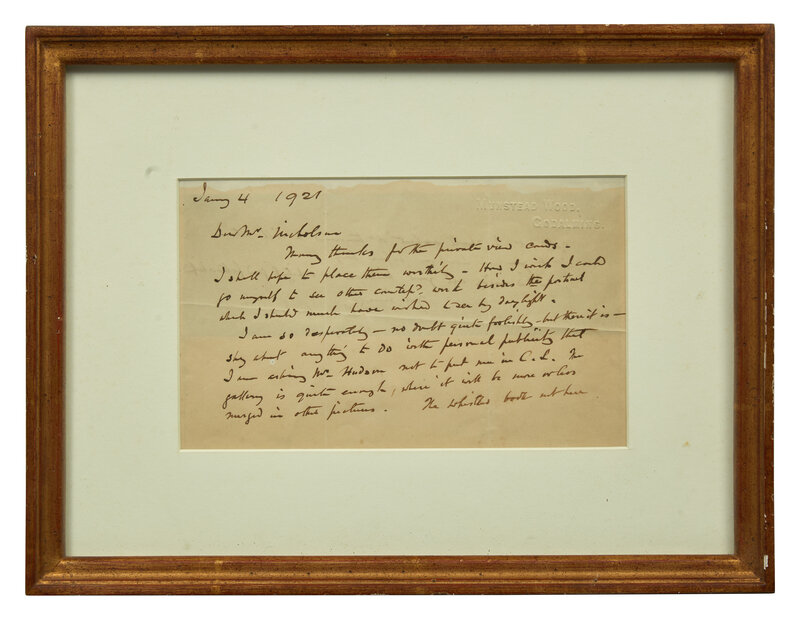 Jany 4 1921
MUNSTEAD WOOD,
GODALMING.
Dear Mr. Nicholson
Many thanks for the private view cards –
I shall hope to place them worthily – How I wish I could
go myself to see other work besides the portrait
which I should much have wished to see by daylight.
I am so desperately – no doubt quite foolishly – but there it is –
shy about anything to do with personal publicity that
I am asking Mr. Hudson not to put me in C. L. The
gallery is quite enough, where it will be more or less
merged in other pictures. The Whistler book not here